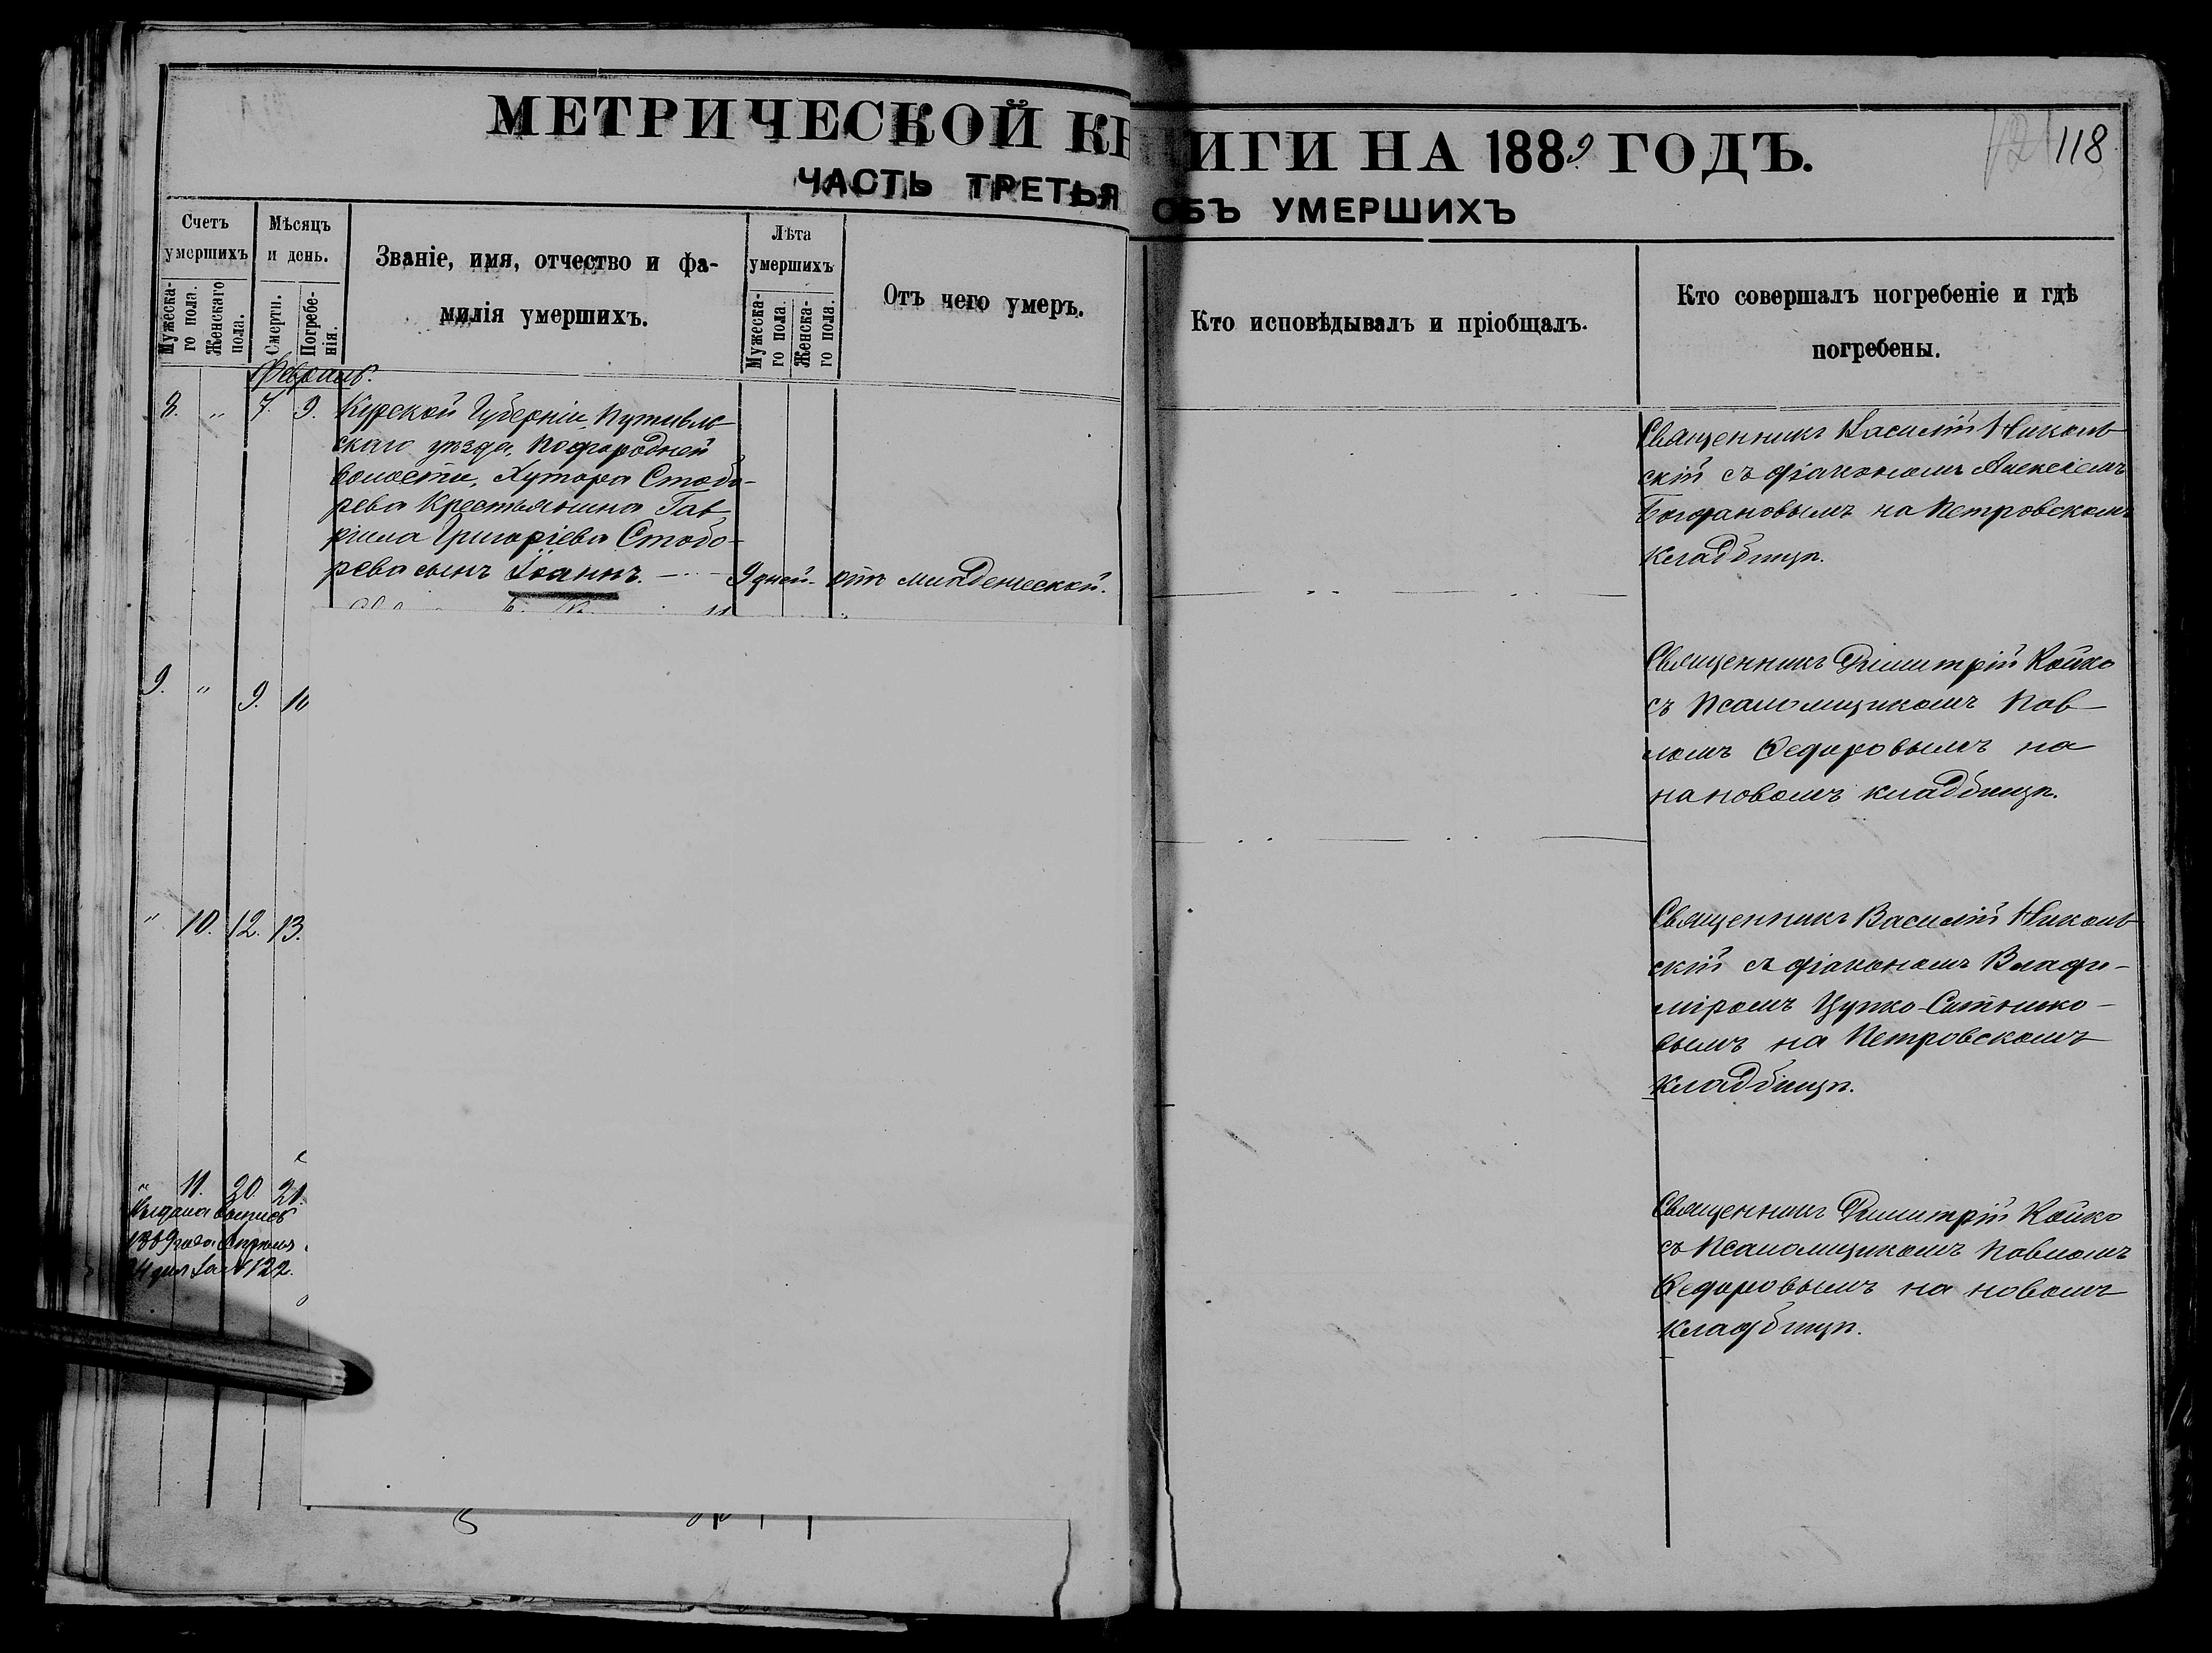 МЕТРИЧЕСКОЙ КНИГИ НА 1889 ГОДЪ.
118
ЧАСТЬ ТРЕТЬЯ ОБЪ УМЕРШИХЪ
Счетъ умершихъ
Мужеска-го пола.
Женскаго пола.
Мѣсяцъ и день.
Смерти.
Погребе-нія.
Званіе, имя, отчество и фа-
милія умершихъ.
Лѣта умершихъ
Мужеска-го пола.
Женска-го пола.
Отъ чего умеръ.
Кто исповѣдывалъ и пріобщалъ.
Кто совершалъ погребеніе и гдѣ
погребены.
Февраль.
8. „ 7. 9. Курской Губерніи, Путивль
скаго уѣзда, Подгородней
волости, Хутора Стобо-
рева Крестьянина Гав
ріила Григоріева Стобо-
рева сынъ Іоаннъ. 9 дней. отъ младенческой.
Священникъ Василій Николь
скій съ діакономъ Алексіемъ
Богдановымъ на Петровскомъ
кладбищѣ.
9. „ 9. 10
Священникъ Димитрій Койко
съ Псаломщикомъ Пав
ломъ Ѳедоровымъ на
на новомъ кладбищѣ.
„ 10. 12. 13.
Священникъ Василій Николь
скій съ діакономъ Влади-
міромъ Цупко-Ситнико-
вымъ на Петровскомъ
кладбищѣ.
„ 11. 20. 21.
Выдана выпись
1889 года Апрѣля
24 дня за № 122.
Священникъ Димитрій Койко
съ Псаломщикомъ Павломъ
Ѳедоровымъ на новомъ
кладбищѣ.